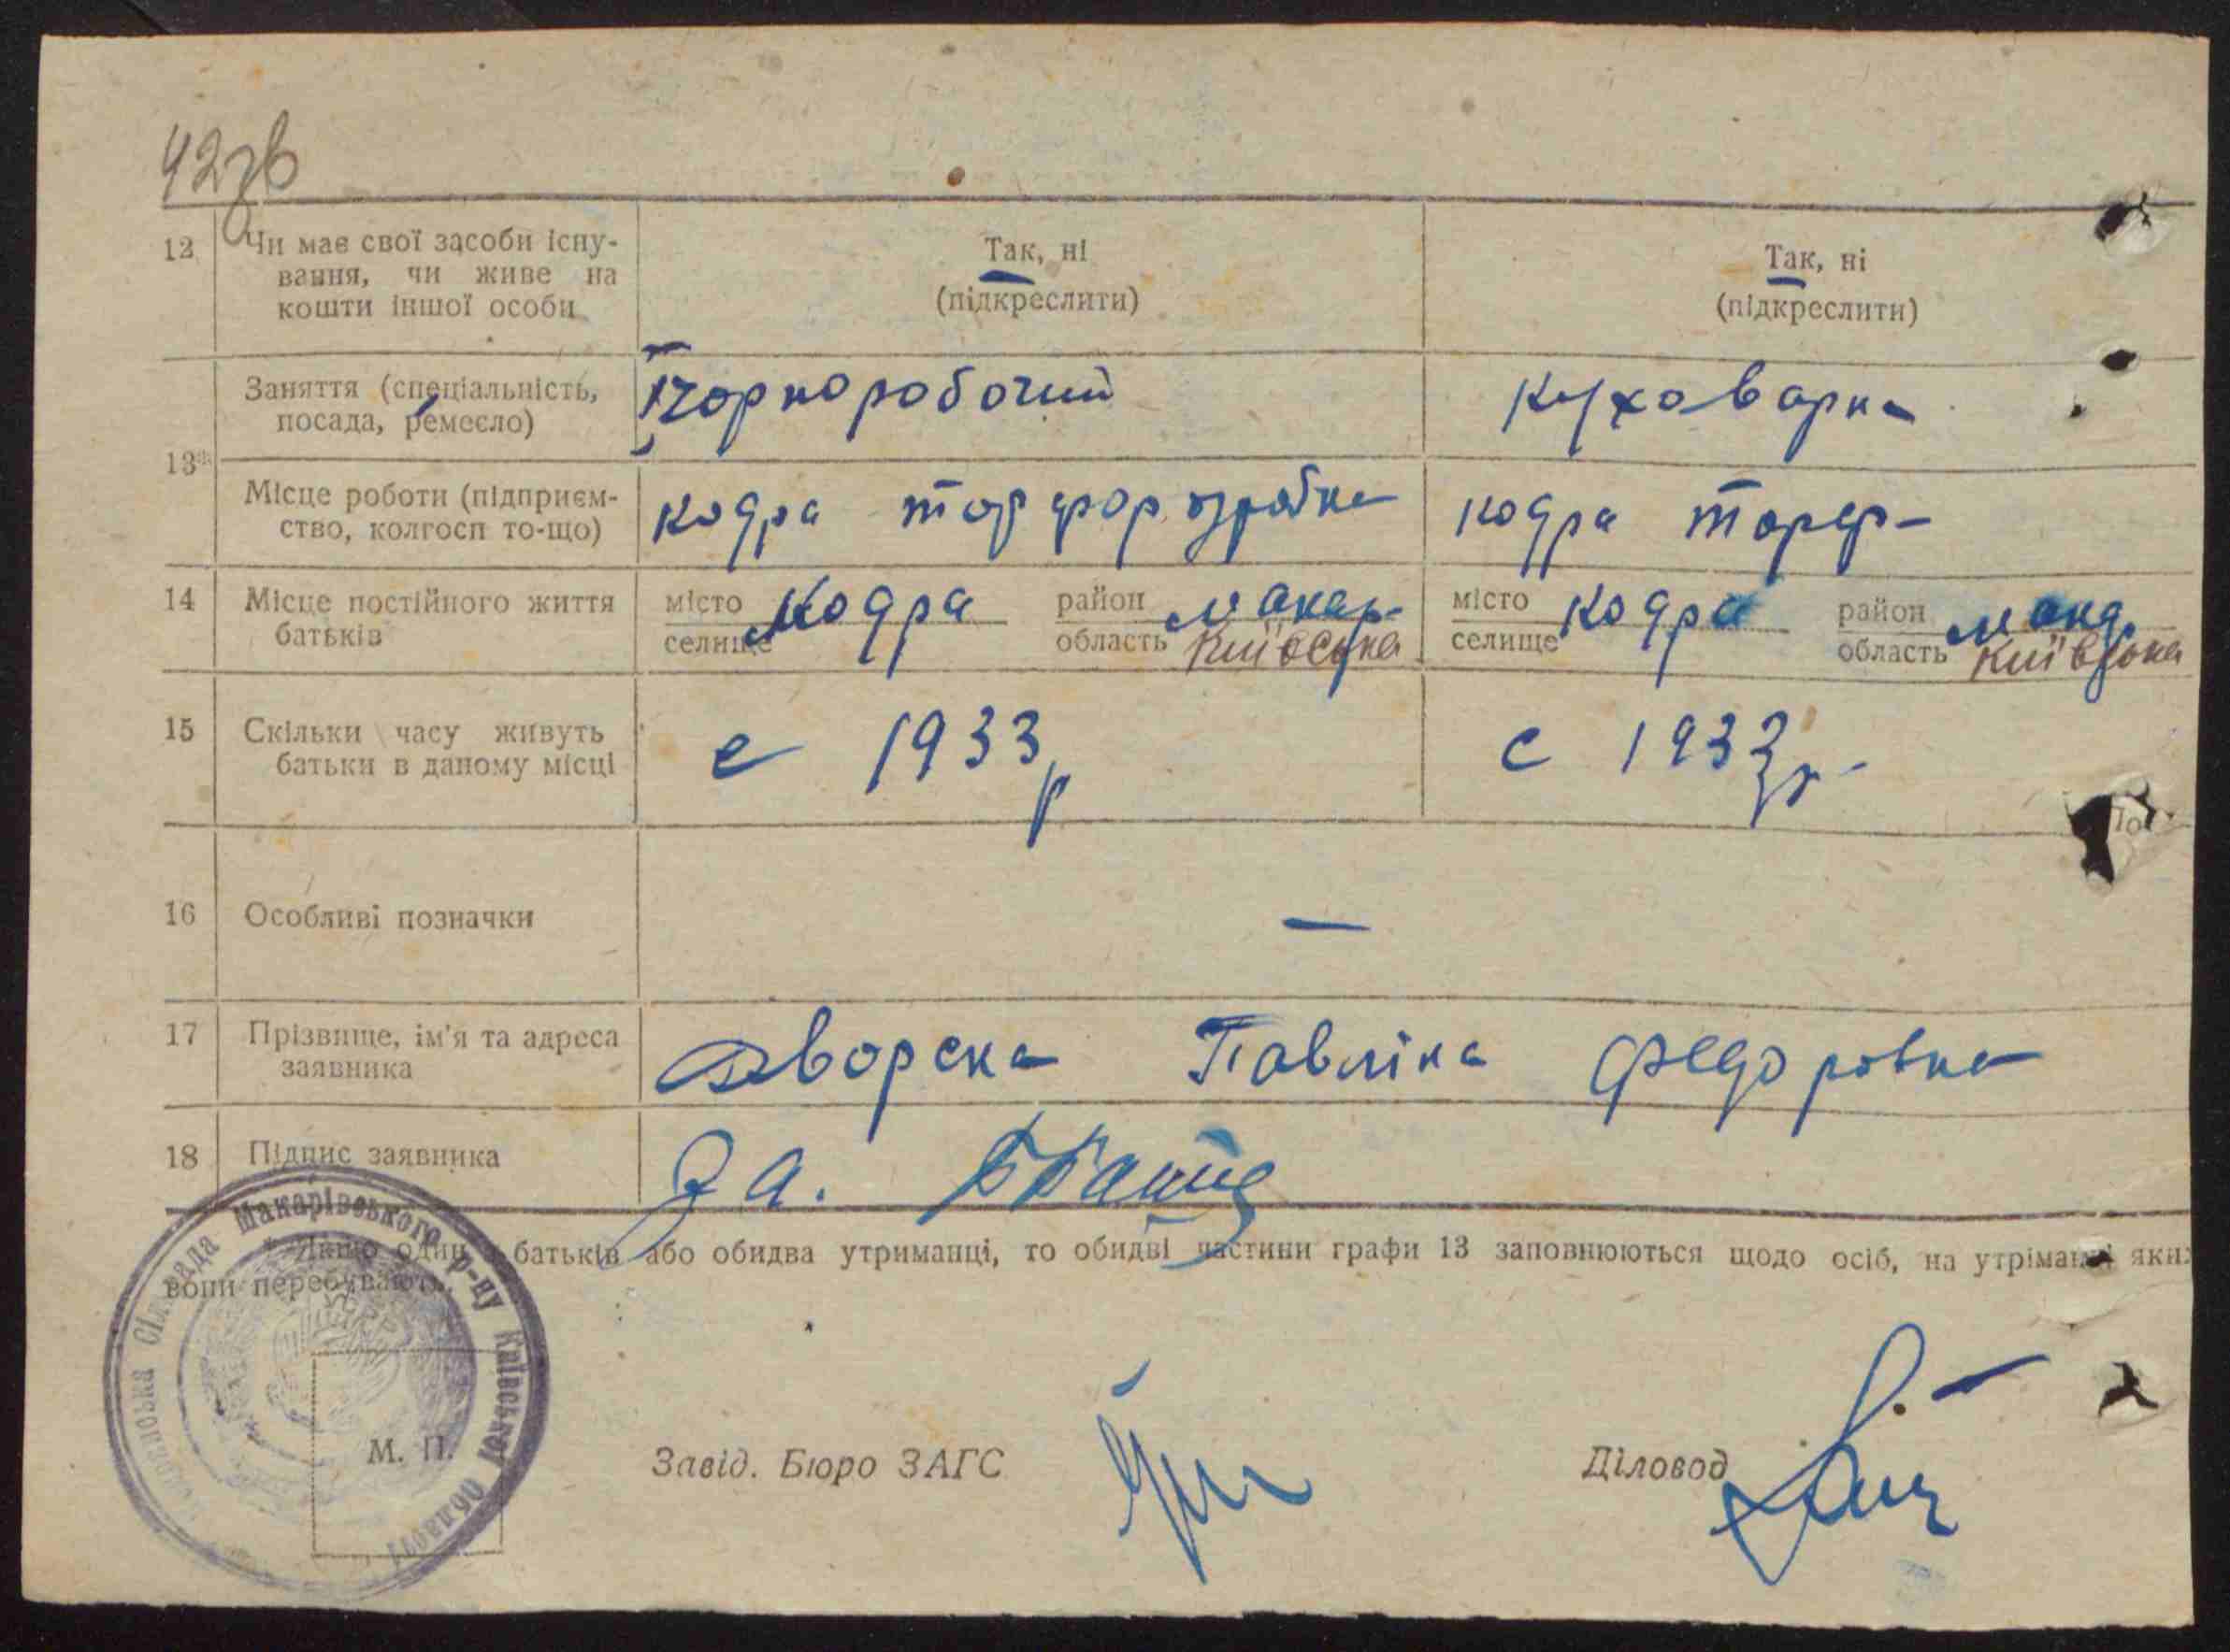 42зв
12 Чи має свої засоби існу- Так, ні Так, ні
вання, чи живе на (підкреслити) (підкреслити)
кошти іншої особи
13* Заняття (спеціальність, Чорноробочий Куховарка
посада, ремесло)
Місце роботи (підприєм- кодра торфорозробка кодра торф-
ство, колгосп то-що)
14 Місце постійного життя місто Кодра район Макар. місто Кодра район Мака.
батьків селище область Київська селище область Київська
15 Скільки часу живуть с 1933 р с 1933 р
батьки в даному місці
16 Особливі позначки —
17 Прізвище, ім'я та адреса Дворска Павліна Федоровна
заявника
18 Підпис заявника За.
* Якщо один з батьків або обидва утриманці, то обидві частини графи 13 заповнюються щодо осіб, на утріманні яких
вони перебувають.
Сільрада Макарівського р-ну Київської області
М. П. Завід. Бюро ЗАГС Діловод